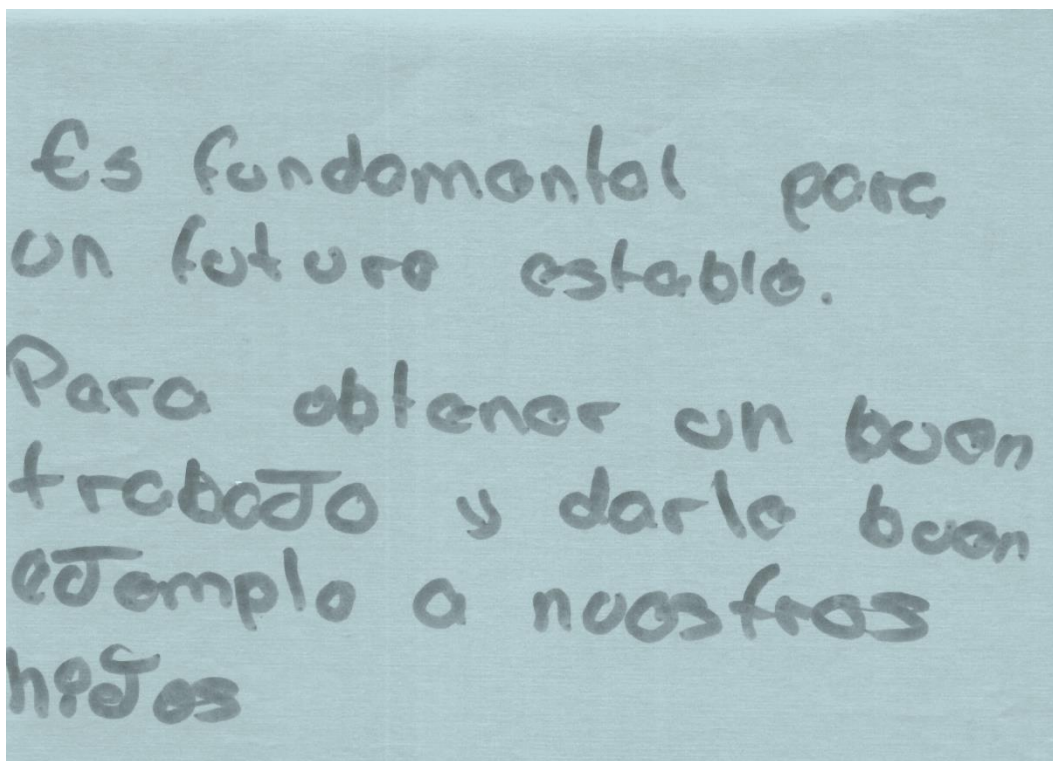 Es fundamental para
un futuro estable.
Para obtener un buen
trabaJo y darle buen
eJemplo a nuestros
hiJos